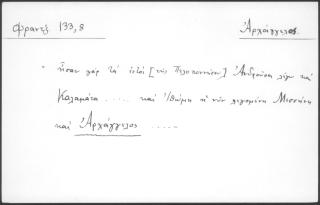 Φραντζ 133,8
Ἀρχάγγελος
" ἦσαν γὰρ τὰ ἐντὸς [τῆς Πελοποννήσου] Ἀνδροῦσα
Καλαμάτα ..... καὶ Ἰθώμη ἡ νῦν λεγομένη Μεσσήνη
καὶ Ἀρχάγγελος .....